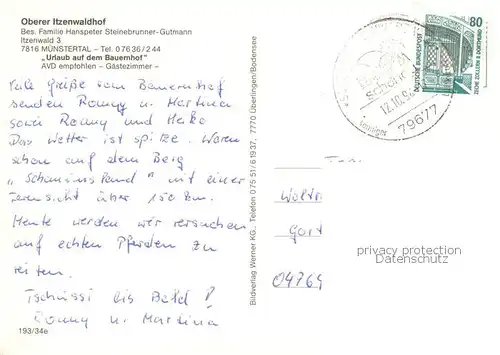 Oberer Itzenwaldhof
Bes. Familie Hanspeter Steinebrunner-Gutmann
Itzenwald 3
7816 MÜNSTERTAL – Tel. 07636/244
„Urlaub auf dem Bauernhof"
AVD empfohlen – Gästezimmer –
Viele Grüße vom Bauernhof
senden Ronny u. Martina
sowie Ronny und Heiko
Das Wetter ist spitze. Waren
schon auf dem Berg
„Schauinsland" mit einer
Fernsicht über 150 km.
Heute werden wir versuchen
auf echten Pferden zu
reiten.
Tschüssi bis Bald!
Ronny u. Martina
193/34e
Bildverlag Werner KG., Telefon 075 51/6 19 37, 7770 Überlingen/Bodensee
79677
80
DEUTSCHE BUNDESPOST
ZECHE ZOLLERN II DORTMUND
Woltr
Gart
04769
privacy protection
Datenschutz